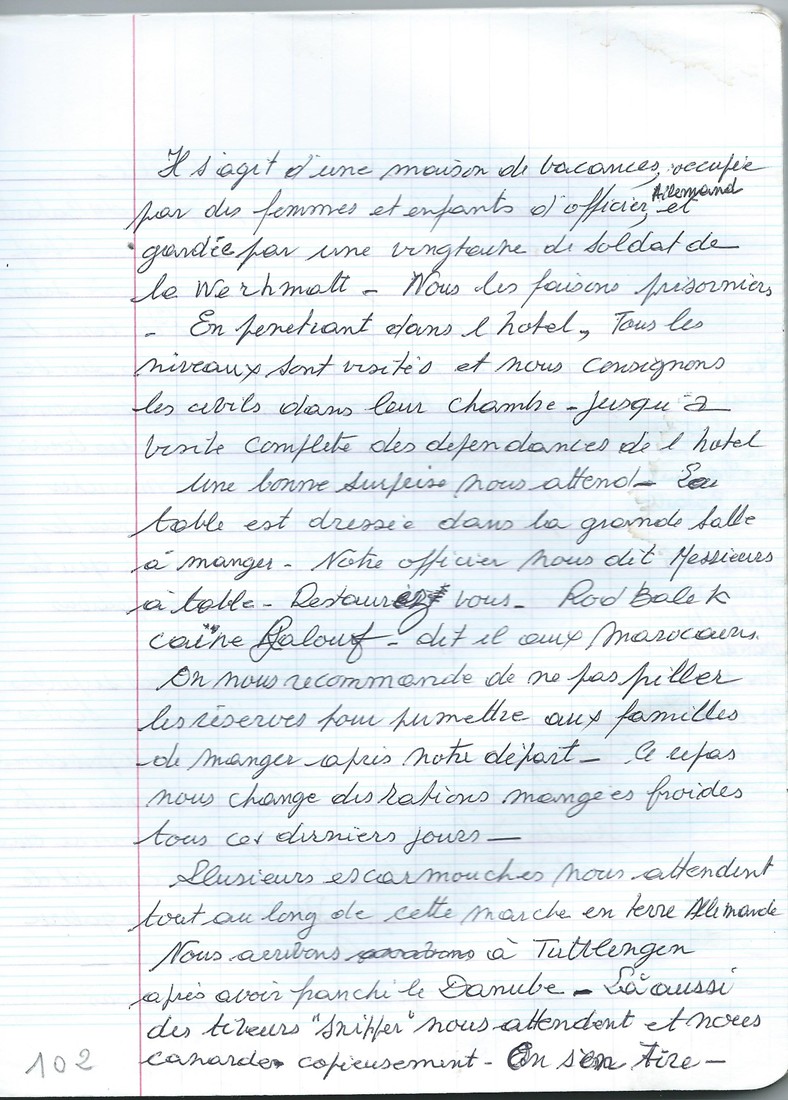 Il s'agit d'une maison de vacances, occupée
par des femmes et enfants d'officier, Allemand et
gardée par une vingtaine de soldat de
la Werhmatt - Nous les faisons prisonniers
- En penetrant dans l hotel, Tous les
niveaux sont visités et nous consignons
les civils dans leur chambre - jusqu'à
visite complete des dependances de l hotel
Une bonne surprise nous attend - La
table est dressée dans la grande salle
à manger - Notre officier nous dit Messieurs
à table - Restaurez vous - Rod Balek
caïne Halouf - dit il aux marocains.
On nous recommande de ne pas piller
les réserves pour permettre aux familles
de manger après notre départ - Ce repas
nous change des rations mangées froides
tous ces derniers jours -
Plusieurs escarmouches nous attendent
tout au long de cette marche en terre Allemande
Nous arrivons à Tuttlengen
après avoir franchi le Danube - Là aussi
des tireurs "snipper" nous attendent et nous
canarde copieusement - On s'en tire -
102